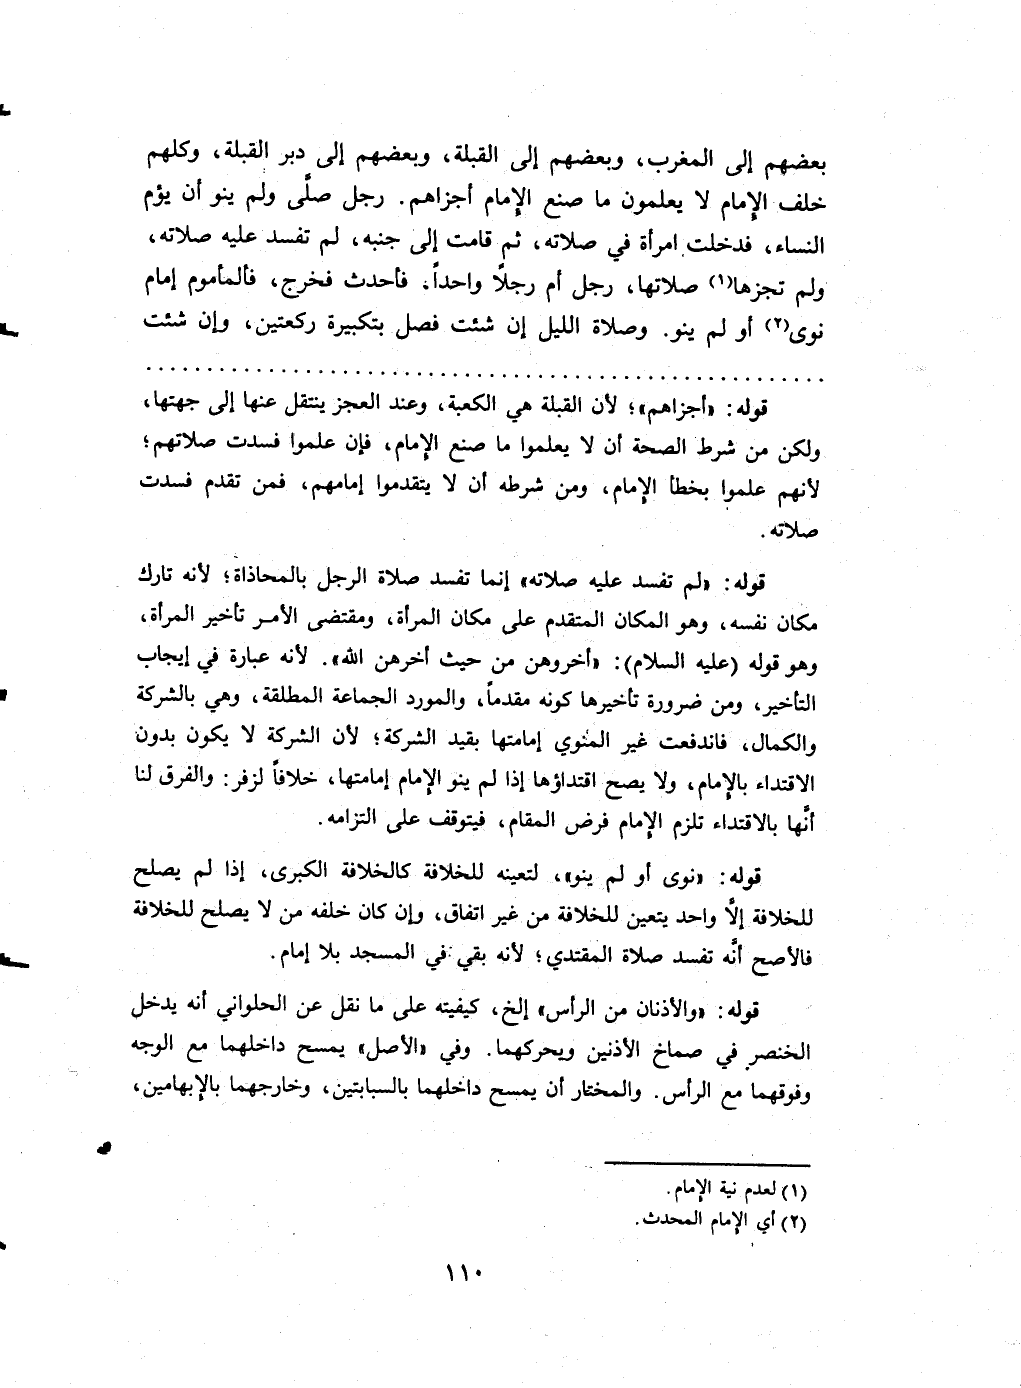 بعضهم إلى المغرب، وبعضهم إلى القبلة، وبعضهم إلى دبر القبلة، وكلهم
خلف الإمام لا يعلمون ما صنع الإمام أجزاهم. رجل صلَّى ولم ينو أن يؤم
النساء، فدخلت امرأة في صلاته، ثم قامت إلى جنبه، لم تفسد عليه صلاته،
ولم تجزها(١) صلاتها، رجل أم رجلًا واحداً، فأحدث فخرج، فألمأموم إمام
نوى(٢) أو لم ينو. وصلاة الليل إن شئت فصل بتكبيرة ركعتين، وإن شئت
قوله: «أجزاهم»؛ لأن القبلة هي الكعبة، وعند العجز ينتقل عنها إلى جهتها،
ولكن من شرط الصحة أن لا يعلموا ما صنع الإمام، فإن علموا فسدت صلاتهم؛
لأنهم علموا بخطأ الإمام، ومن شرطه أن لا يتقدموا إمامهم، فمن تقدم فسدت
صلاته.
قوله: «لم تفسد عليه صلاته» إنما تفسد صلاة الرجل بالمحاذاة؛ لأنه تارك
مكان نفسه، وهو المكان المتقدم على مكان المرأة، ومقتضى الأمر تأخير المرأة،
وهو قوله (عليه السلام): «أخروهن من حيث أخرهن الله». لأنه عبارة في إيجاب
التأخير، ومن ضرورة تأخيرها كونه مقدماً، والمورد الجماعة المطلقة، وهي بالشركة
والكمال، فاندفعت غير المنوي إمامتها بقيد الشركة؛ لأن الشركة لا يكون بدون
الاقتداء بالإمام، ولا يصح اقتداؤها إذا لم ينو الإمام إمامتها، خلافاً لزفر: والفرق لنا
أنَّها بالاقتداء تلزم الإمام فرض المقام، فيتوقف على التزامه.
قوله: «نوى أو لم ينو»، لتعينه للخلافة كالخلافة الكبرى، إذا لم يصلح
للخلافة إلَّا واحد يتعين للخلافة من غير اتفاق، وإن كان خلفه من لا يصلح للخلافة
فالأصح أنَّه تفسد صلاة المقتدي؛ لأنه بقي في المسجد بلا إمام.
قوله: «والأذنان من الرأس» إلخ، كيفيته على ما نقل عن الحلواني أنه يدخل
الخنصر في صماخ الأذنين ويحركهما. وفي «الأصل» يمسح داخلهما مع الوجه
وفوقهما مع الرأس. والمختار أن يمسح داخلهما بالسبابتين، وخارجهما بالإبهامين،
(١) لعدم نية الإمام.
(٢) أي الإمام المحدث.
١١٠